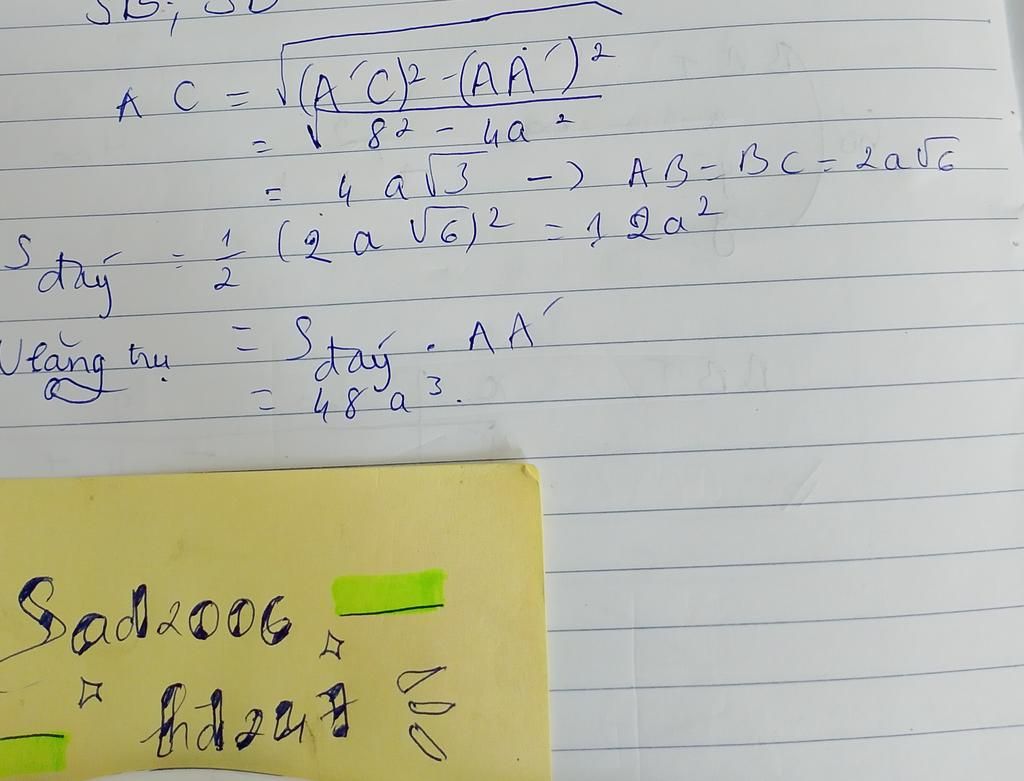 SB; SD
AC = √((A'C)² - (AA')²)
= √(8² - 4a²)
= 4a√3 -> AB = BC = 2a√6
S đáy = 1/2 (2a√6)² = 12a²
V lăng trụ = S đáy . AA'
= 48a³.
Sad2006
hd247